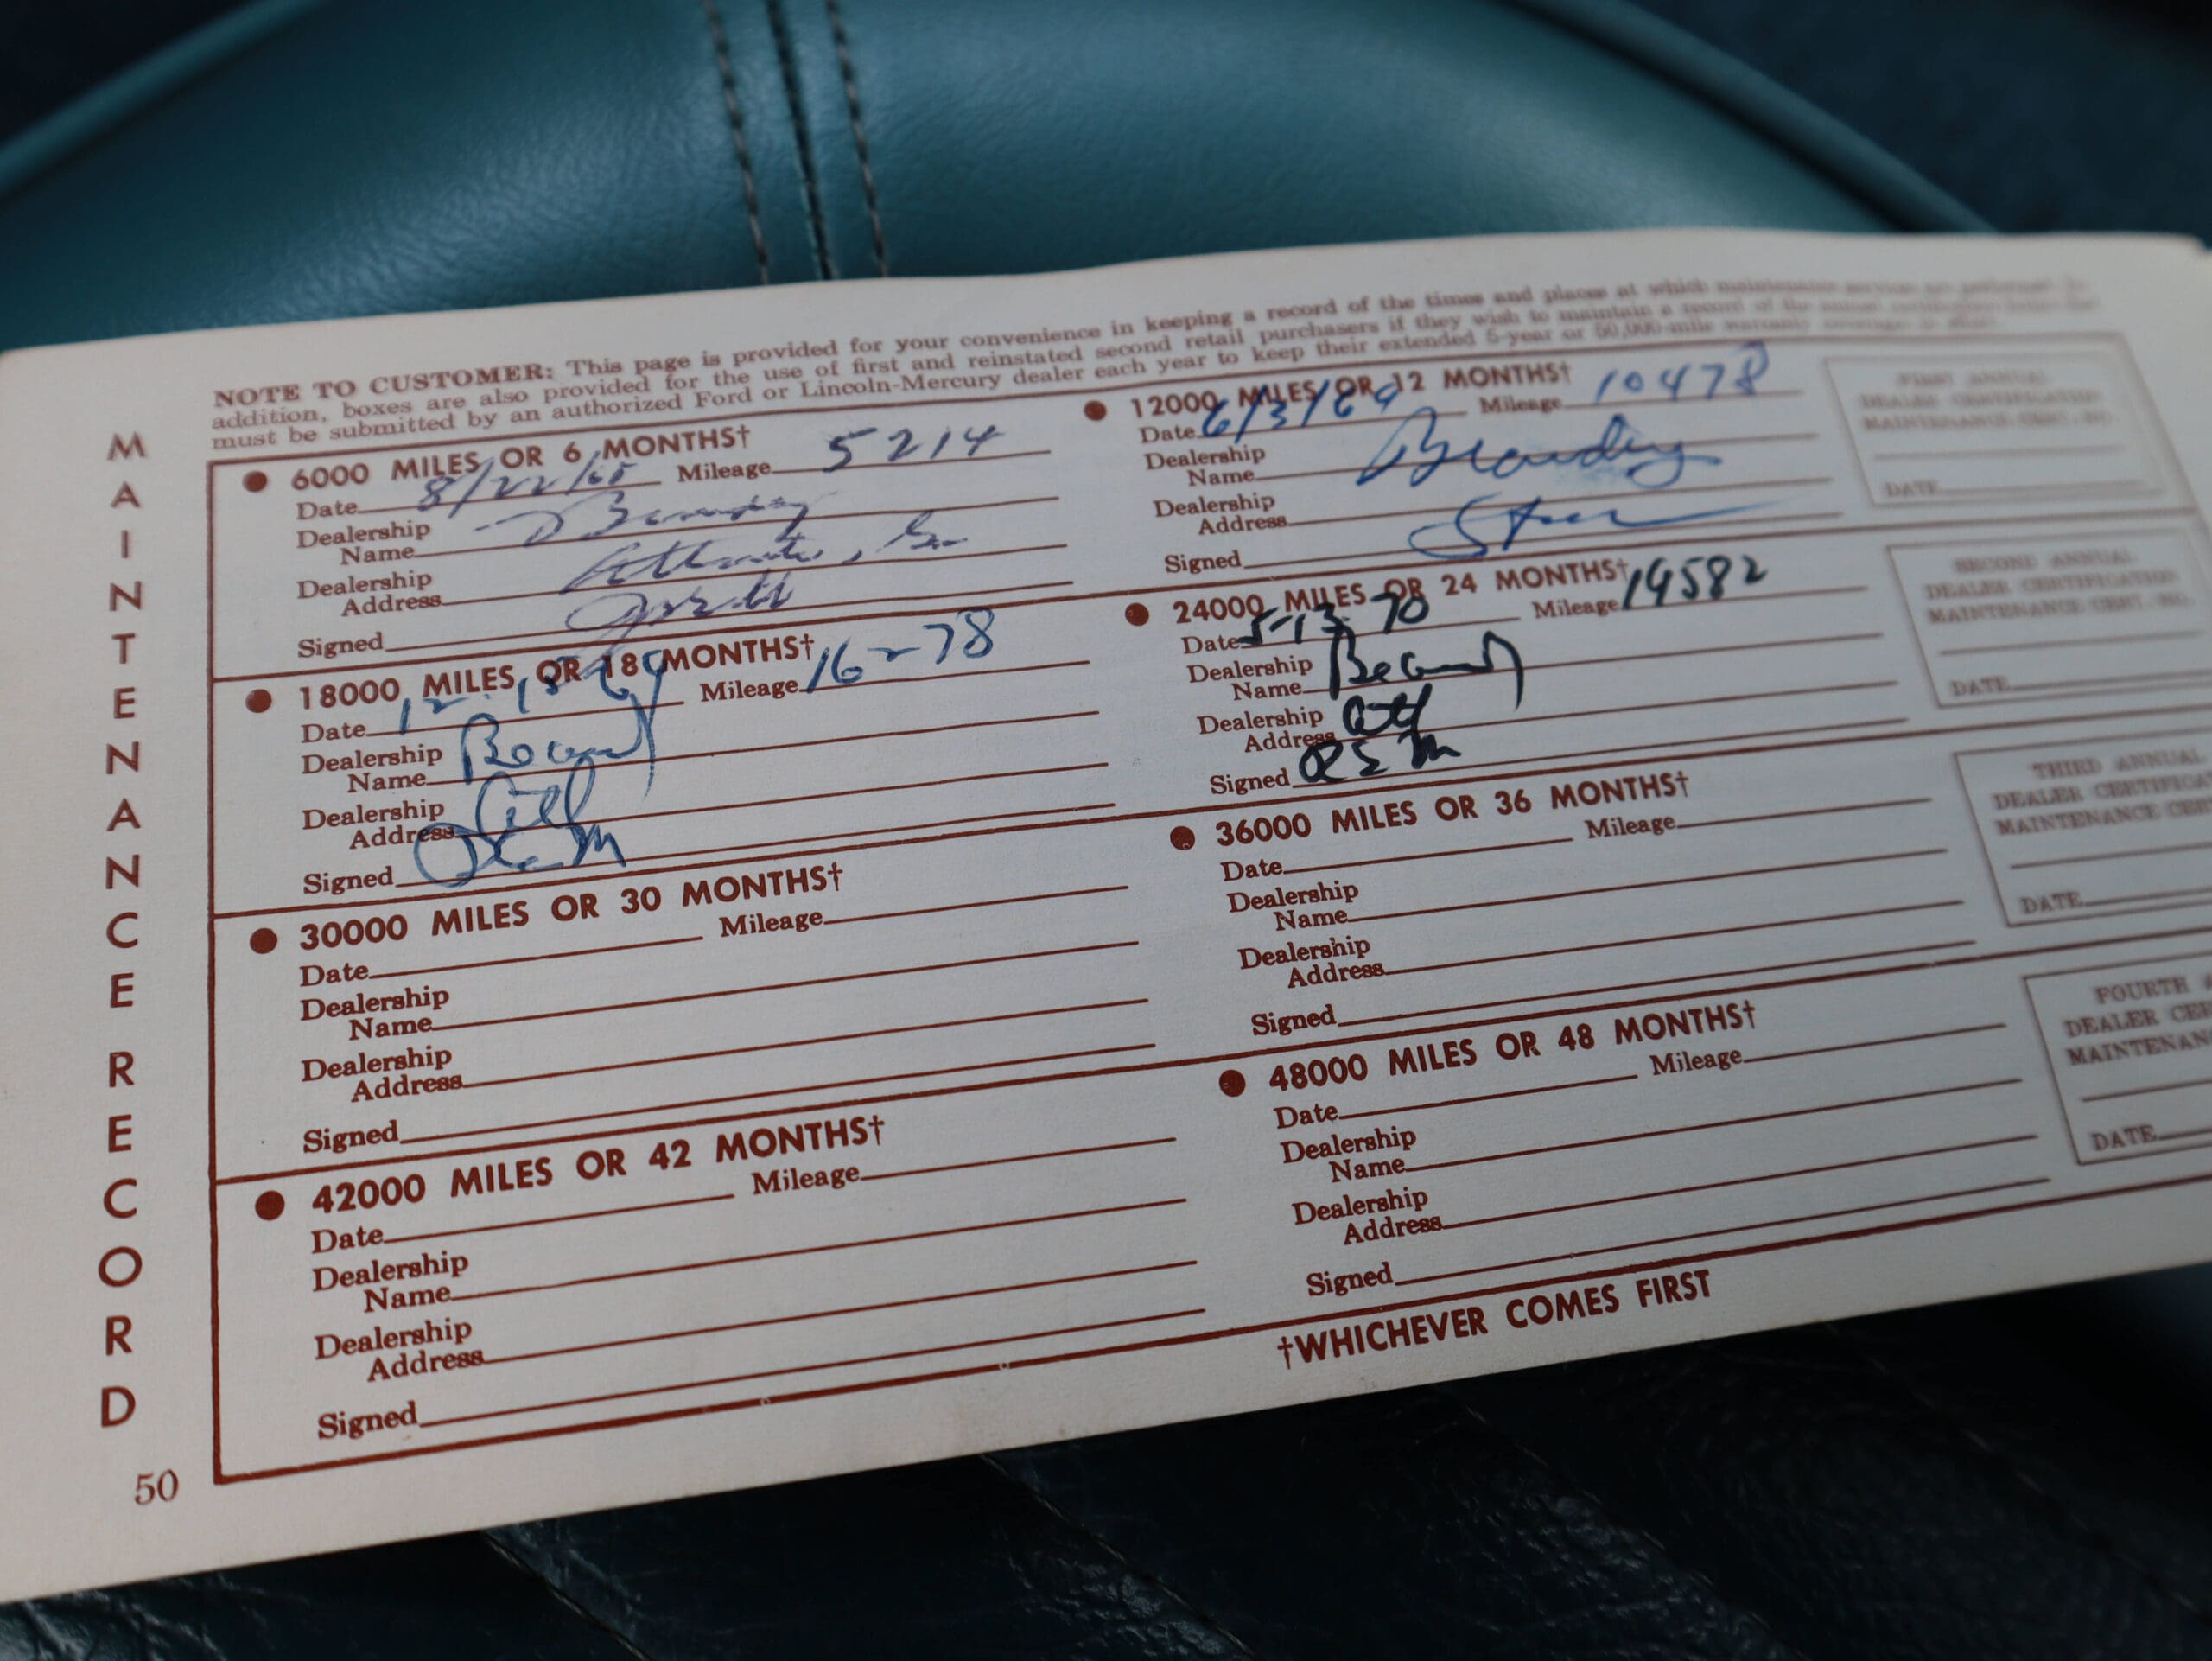 NOTE TO CUSTOMER: This page is provided for your convenience in keeping a record of the times and places at which maintenance service are performed. In
addition, boxes are also provided for the use of first and reinstated second retail purchasers if they wish to maintain a record of the annual
must be submitted by an authorized Ford or Lincoln-Mercury dealer each year to keep their extended 5-year or 50,000-mile warranty coverage in
MAINTENANCE RECORD
6000 MILES OR 6 MONTHS†
Date 8/22/68 Mileage 5214
Dealership
Name
Dealership
Address Atlanta, Ga
Signed
12000 MILES OR 12 MONTHS†
Date 6/3/69 Mileage 10478
Dealership
Name
Dealership
Address
Signed
FIRST ANNUAL
DEALER CERTIFICATION
MAINTENANCE CERT. NO.
DATE
18000 MILES OR 18 MONTHS†
Date 12 18 69 Mileage 16-78
Dealership
Name
Dealership
Address Atl
Signed
24000 MILES OR 24 MONTHS†
Date 5-13-70 Mileage 19582
Dealership
Name
Dealership
Address Atl
Signed
SECOND ANNUAL
DEALER CERTIFICATION
MAINTENANCE CERT. NO.
DATE
30000 MILES OR 30 MONTHS†
Date Mileage
Dealership
Name
Dealership
Address
Signed
36000 MILES OR 36 MONTHS†
Date Mileage
Dealership
Name
Dealership
Address
Signed
THIRD ANNUAL
DEALER CERTIFICA
MAINTENANCE CER
DATE
42000 MILES OR 42 MONTHS†
Date Mileage
Dealership
Name
Dealership
Address
Signed
48000 MILES OR 48 MONTHS†
Date Mileage
Dealership
Name
Dealership
Address
Signed
FOURTH A
DEALER CER
MAINTENAN
DATE
†WHICHEVER COMES FIRST
50